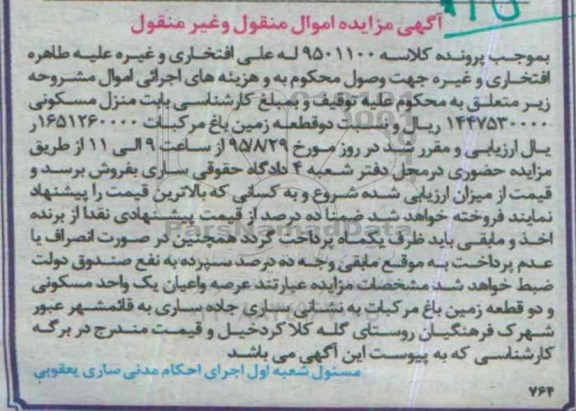 آگهی مزایده اموال منقول وغیر منقول
بموجب پرونده کلاسه ۹۵۰۱۱۰۰ له علی افتخاری و غیره علیه طاهره
افتخاری و غیره جهت وصول محکوم به و هزینه های اجرائی اموال مشروحه
زیر متعلق به محکوم علیه توقیف و بمبلغ کارشناسی بابت منزل مسکونی
۱۴۴۷۵۳۰۰۰۰ ریال و نسبت دوقطعه زمین باغ مرکبات ۱۶۵۱۲۶۰۰۰۰ر
یال ارزیابی و مقرر شد در روز مورخ ۹۵/۸/۲۹ از ساعت ۹ الی ۱۱ از طریق
مزایده حضوری درمحل دفتر شعبه ۴ دادگاه حقوقی ساری بفروش برسد و
قیمت از میزان ارزیابی شده شروع و به کسانی که بالاترین قیمت را پیشنهاد
نمایند فروخته خواهد شد ضمنا ده درصد از قیمت پیشنهادی نقدا از برنده
اخذ و مابقی باید ظرف یکماه پرداخت گردد همچنین در صورت انصراف یا
عدم پرداخت به موقع مابقی وجه ده درصد سپرده به نفع صندوق دولت
ضبط خواهد شد مشخصات مزایده عبارتند عرصه واعیان یک واحد مسکونی
و دو قطعه زمین باغ مرکبات به نشانی - ساری جاده ساری به قائمشهر عبور
شهرک فرهنگیان روستای گله کلا کردخیل و قیمت مندرج در برگه
کارشناسی که به پیوست این آگهی می باشد
مسئول شعبه اول اجرای احکام مدنی ساری یعقوبی
۷۶۴
ParsNamadData